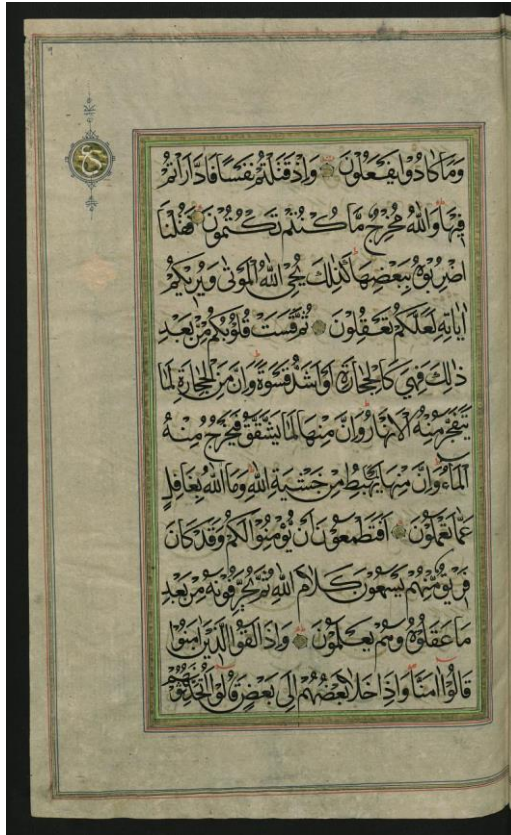 وَمَا كَادُوا يَفْعَلُونَ وَاِذْ قَتَلْتُمْ نَفْسًا فَادَّارَاْتُمْ
فِيهَا وَاللّٰهُ مُخْرِجٌ مَا كُنْتُمْ تَكْتُمُونَ فَقُلْنَا
اضْرِبُوهُ بِبَعْضِهَا كَذٰلِكَ يُحْيِ اللّٰهُ الْمَوْتٰى وَيُرِيكُمْ
اٰيَاتِهِ لَعَلَّكُمْ تَعْقِلُونَ ثُمَّ قَسَتْ قُلُوبُكُمْ مِنْ بَعْدِ
ذٰلِكَ فَهِيَ كَالْحِجَارَةِ اَوْ اَشَدُّ قَسْوَةً وَاِنَّ مِنَ الْحِجَارَةِ لَمَا
يَتَفَجَّرُ مِنْهُ الْاَنْهَارُ وَاِنَّ مِنْهَا لَمَا يَشَّقَّقُ فَيَخْرُجُ مِنْهُ
الْمَاۤءُ وَاِنَّ مِنْهَا لَمَا يَهْبِطُ مِنْ خَشْيَةِ اللّٰهِ وَمَا اللّٰهُ بِغَافِلٍ
عَمَّا تَعْمَلُونَ اَفَتَطْمَعُونَ اَنْ يُؤْمِنُوا لَكُمْ وَقَدْ كَانَ
فَرِيقٌ مِنْهُمْ يَسْمَعُونَ كَلَامَ اللّٰهِ ثُمَّ يُحَرِّفُونَهُ مِنْ بَعْدِ
مَا عَقَلُوهُ وَهُمْ يَعْلَمُونَ وَاِذَا لَقُوا الَّذِينَ اٰمَنُوا
قَالُوا اٰمَنَّا وَاِذَا خَلَا بَعْضُهُمْ اِلٰى بَعْضٍ قَالُوا اَتُحَدِّثُونَهُمْ